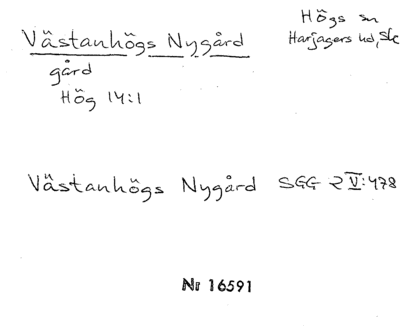 Västanhögs Nygård
Högs sn
Harjagers hd, Sk
gård
Hög 14:1
Västanhögs Nygård SGG 2 V:478
Nr 16591